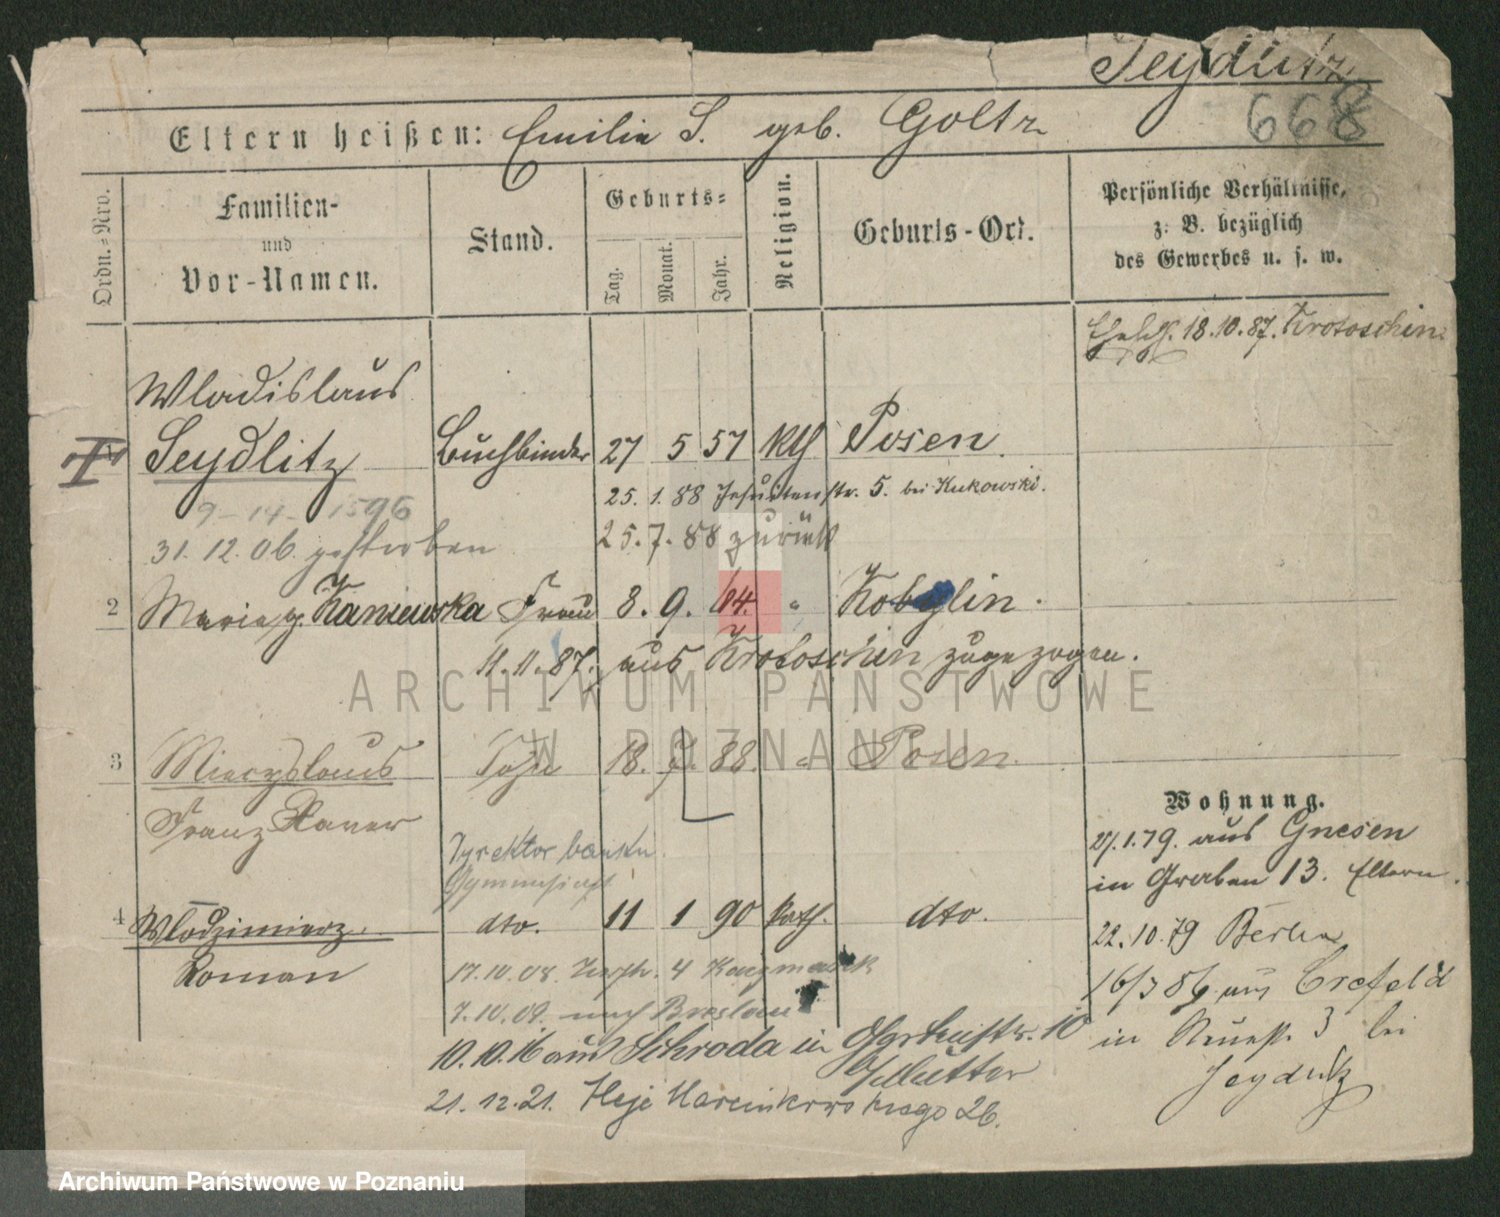 Seydlitz
668
Eltern heißen: Emilia S. geb. Goltz
Ordn.-Nro.
Familien- und Vor-Namen.
Stand.
Geburts-
Tag.
Monat.
Jahr.
Religion.
Geburts-Ort.
Persönliche Verhältnisse, z. B. bezüglich des Gewerbes u. s. w.
18.10.87. Krotoschin
Wladislaus
Seydlitz Buchbinder 27 5 57 kth Posen.
25. 1. 88 Jesuitenstr. 5. bei Kukowski.
9-14-1596
25.7.88 zurück
31.12.06. gestorben
2 Maria g. Kaniewska Frau 8. 9. 64. " Kobylin.
11.11.87. aus Krotoschin zugezogen.
3 Mieczyslaus Sohn 18. 7. 88. " Posen.
Franz Xaver
Dyrektor banku
4 Włodzimierz dto. 11 1 90 kath. dto.
Roman
17.10.08. 4 Kaczmarek
7.10.09. nach Breslau
10.10.16 aus Schroda in Gartenstr. 10
Mutter
21.12.21. Aleje Marcinkowskiego 26.
Wohnung.
1.79. aus Gnesen
in Graben 13. Eltern.
22.10.79 Berlin
16/3 86 aus Crefeld
in 3 bei
Seydlitz
ARCHIWUM PAŃSTWOWE
W POZNANIU
Archiwum Państwowe w Poznaniu